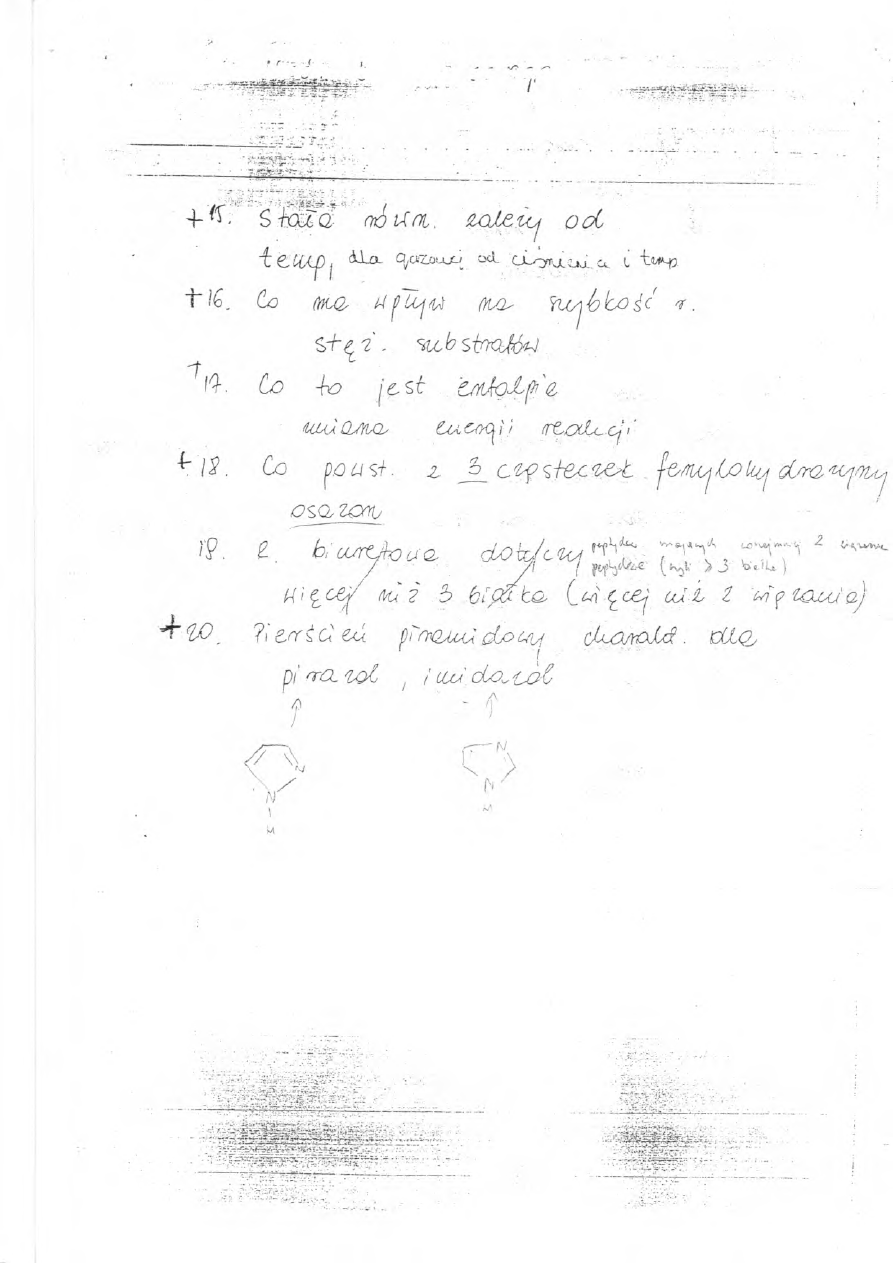 + 15. Stała równ. zależy od
temp, dla gazowej od ciśnienia i temp
+ 16. Co ma wpływ na szybkość r.
stęż. substratów
+ 17. Co to jest entalpia
zmiana energii reakcji
+ 18. Co powst. z 3 cząsteczek fenylohydrazyny
osazon
19. R. biuretowa dotyczy peptydów mających conajmniej 2 wiązania
peptydowe (czyli 3 białka)
więcej niż 3 białka (więcej niż 2 wiązania)
+ 20. Pierścień piramidowy charakt. dla
pirazol, imidazol
N N
N N
H H